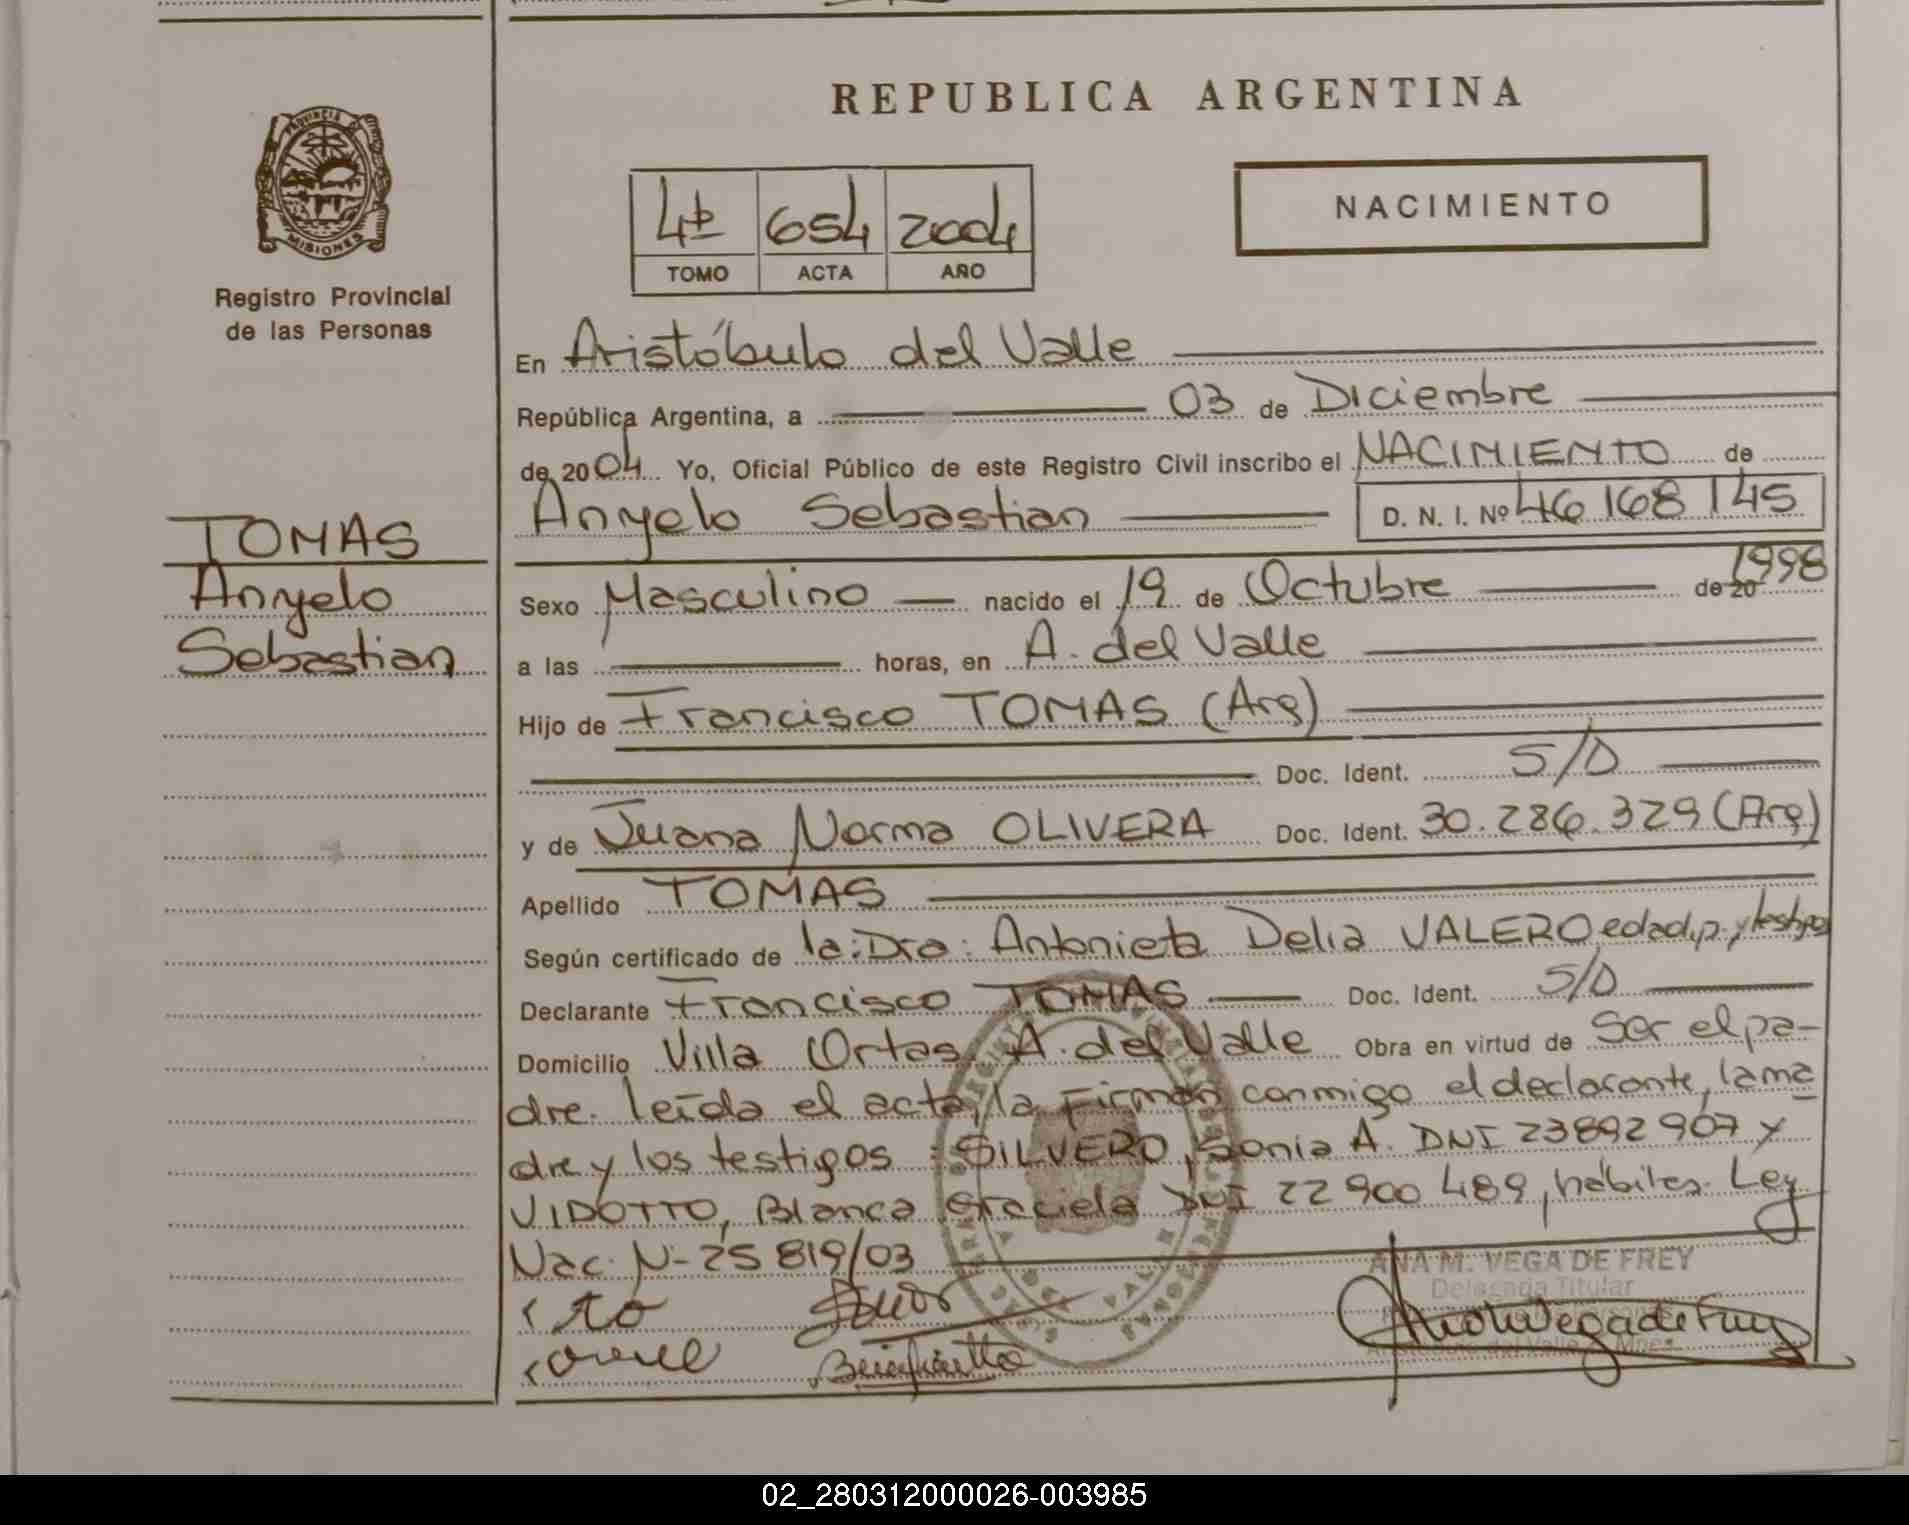 REPUBLICA ARGENTINA
PROVINCIA DE
MISIONES
Registro Provincial
de las Personas
4º 654 2004
TOMO ACTA AÑO
NACIMIENTO
TOMAS
Anyelo
Sebastian
En Aristóbulo del Valle
República Argentina, a 03 de Diciembre
de 2004 Yo, Oficial Público de este Registro Civil inscribo el NACIMIENTO de
Anyelo Sebastian D. N. I. Nº 46 168 145
Sexo Masculino nacido el 19 de Octubre de 20 1998
a las horas, en A. del Valle
Hijo de Francisco TOMAS (Arg)
Doc. Ident. S/D
y de Juana Norma OLIVERA Doc. Ident. 30.286.329 (Arg)
Apellido TOMAS
Según certificado de la: Dra: Antonieta Delia VALERO, edad.p. y testigos
Declarante Francisco TOMAS Doc. Ident. S/D
Domicilio Villa Ortas, A. del Valle Obra en virtud de Ser el pa-
dre. leída el acta, la Firman conmigo el declarante, la ma
dre y los testigos : SILVERO, Sonia A. DNI 23892907 y
VIDOTTO, Blanca Graciela DNI 22 900 489, hábiles. Ley
Nac. N- 25 819/03
ANA M. VEGA DE FREY
Delegada Titular
02_280312000026-003985